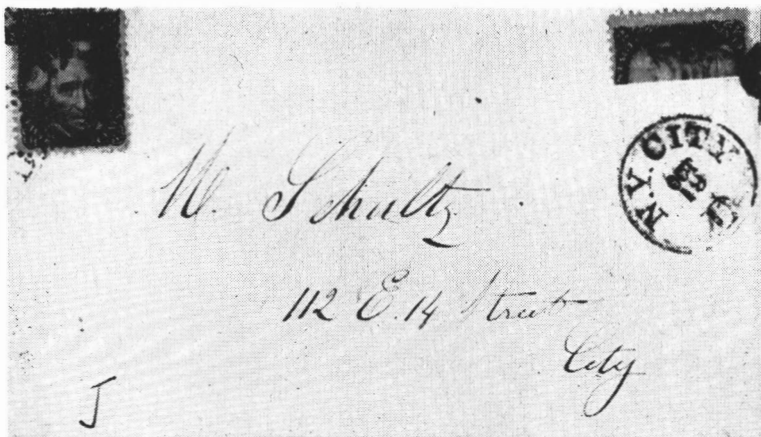 N.Y. CITY
W. Schultz
112 E. 14 Street
City
J